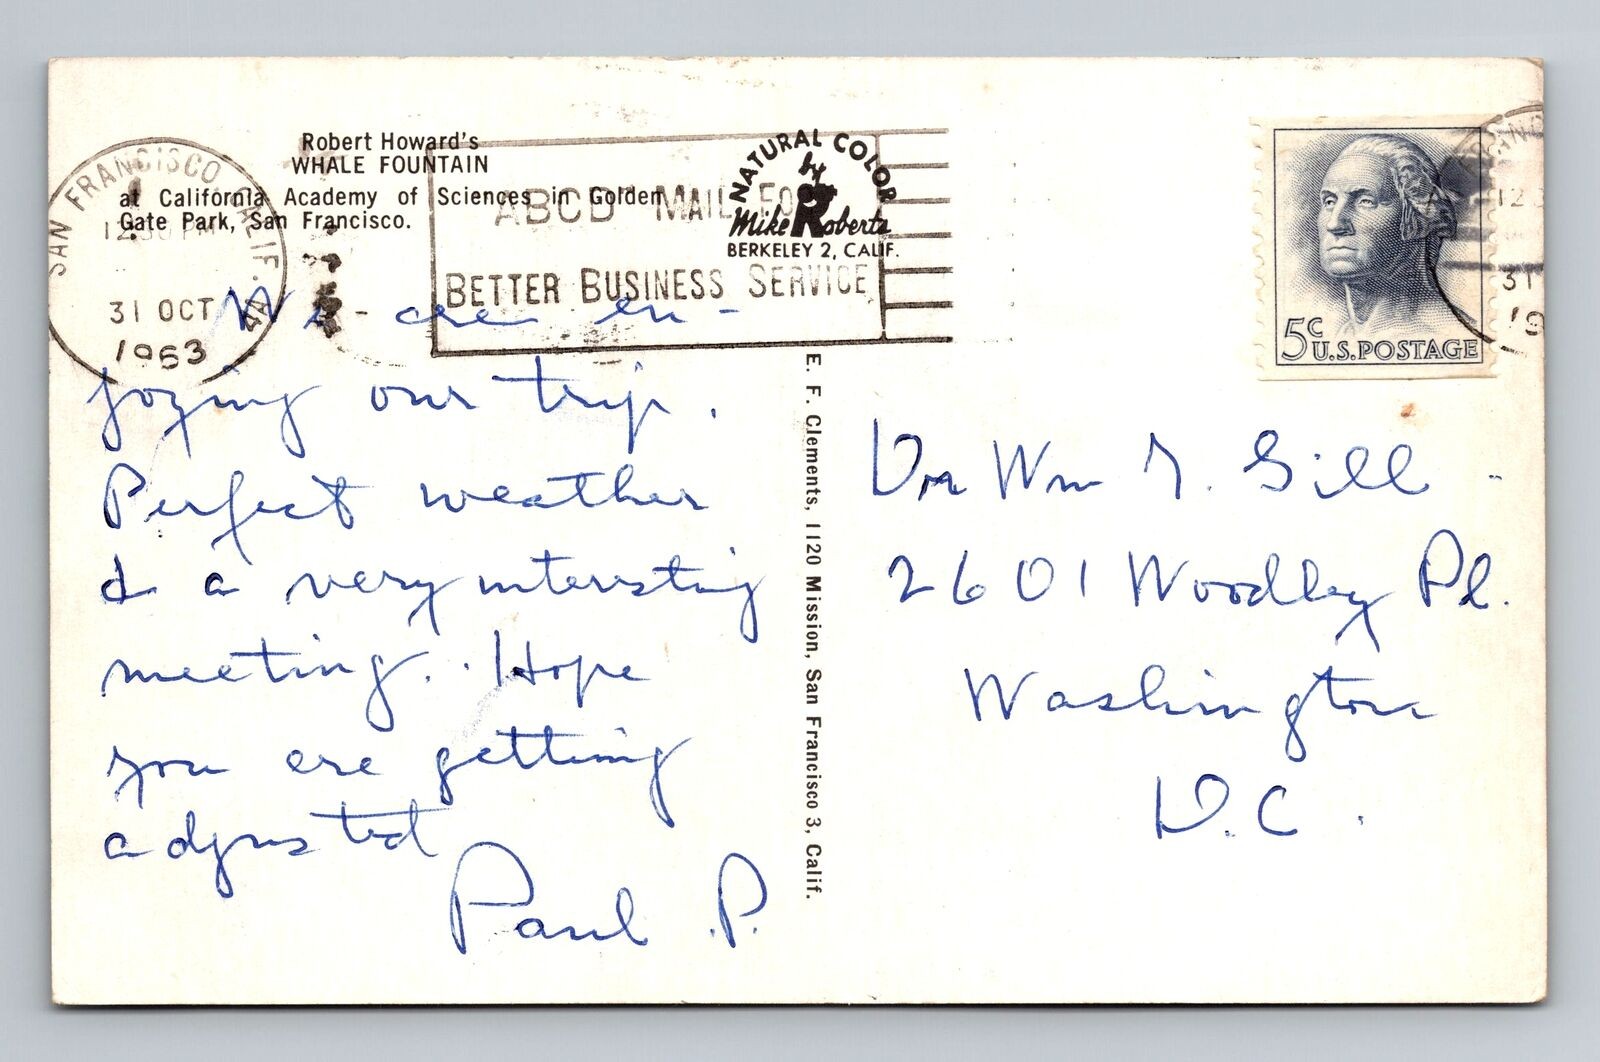 Robert Howard's
WHALE FOUNTAIN
at California Academy of Sciences in Golden
Gate Park, San Francisco.
SAN FRANCISCO CALIF.
12:30 PM
31 OCT
1963
ABCD MAIL FOR
BETTER BUSINESS SERVICE
NATURAL COLOR
by
Mike Roberts
BERKELEY 2, CALIF.
5c
U.S. POSTAGE
31
19
We are en-
joying our trip.
Perfect weather
& a very interesting
meeting. Hope
you are getting
adjusted
Paul P.
E. F. Clements, 1120 Mission, San Francisco 3, Calif.
Dr Wm T. Gill
2601 Woodley Pl.
Washington
D.C.